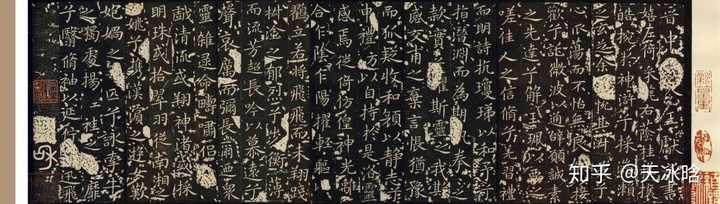 嬉左倚采旄右蔭桂旗攘
皓捥於神滸兮採湍瀨
之玄芝余情悅其淑美兮
心振蕩而不怡無良媒以接
歡兮託微波以通辭願誠素
之先達兮解玉珮而要之
嗟佳人之信脩兮羌習禮
而明詩抗瓊珶以和予兮
指潛淵而為期執拳拳之
款實兮懼斯靈之我欺
感交甫之棄言悵猶豫
而狐疑收和顏以靜志兮
申禮防以自持於是洛靈
感焉徙倚仿偟神光離
合乍陰乍陽擢輕軀以
鶴立若將飛而未翔踐
椒塗之郁烈兮步衡薄
而流芳超長吟以慕遠兮
聲哀厲而彌長爾乃眾
靈雜遝命疇嘯侶或
戲清流或翔神渚或採
明珠或拾翠羽從南湘之
二姚兮攜漢濱之遊女歎
媧之匹兮詠牽牛
之獨處揚袿之靡
兮翳脩袖以延佇
知乎 @天冰晗